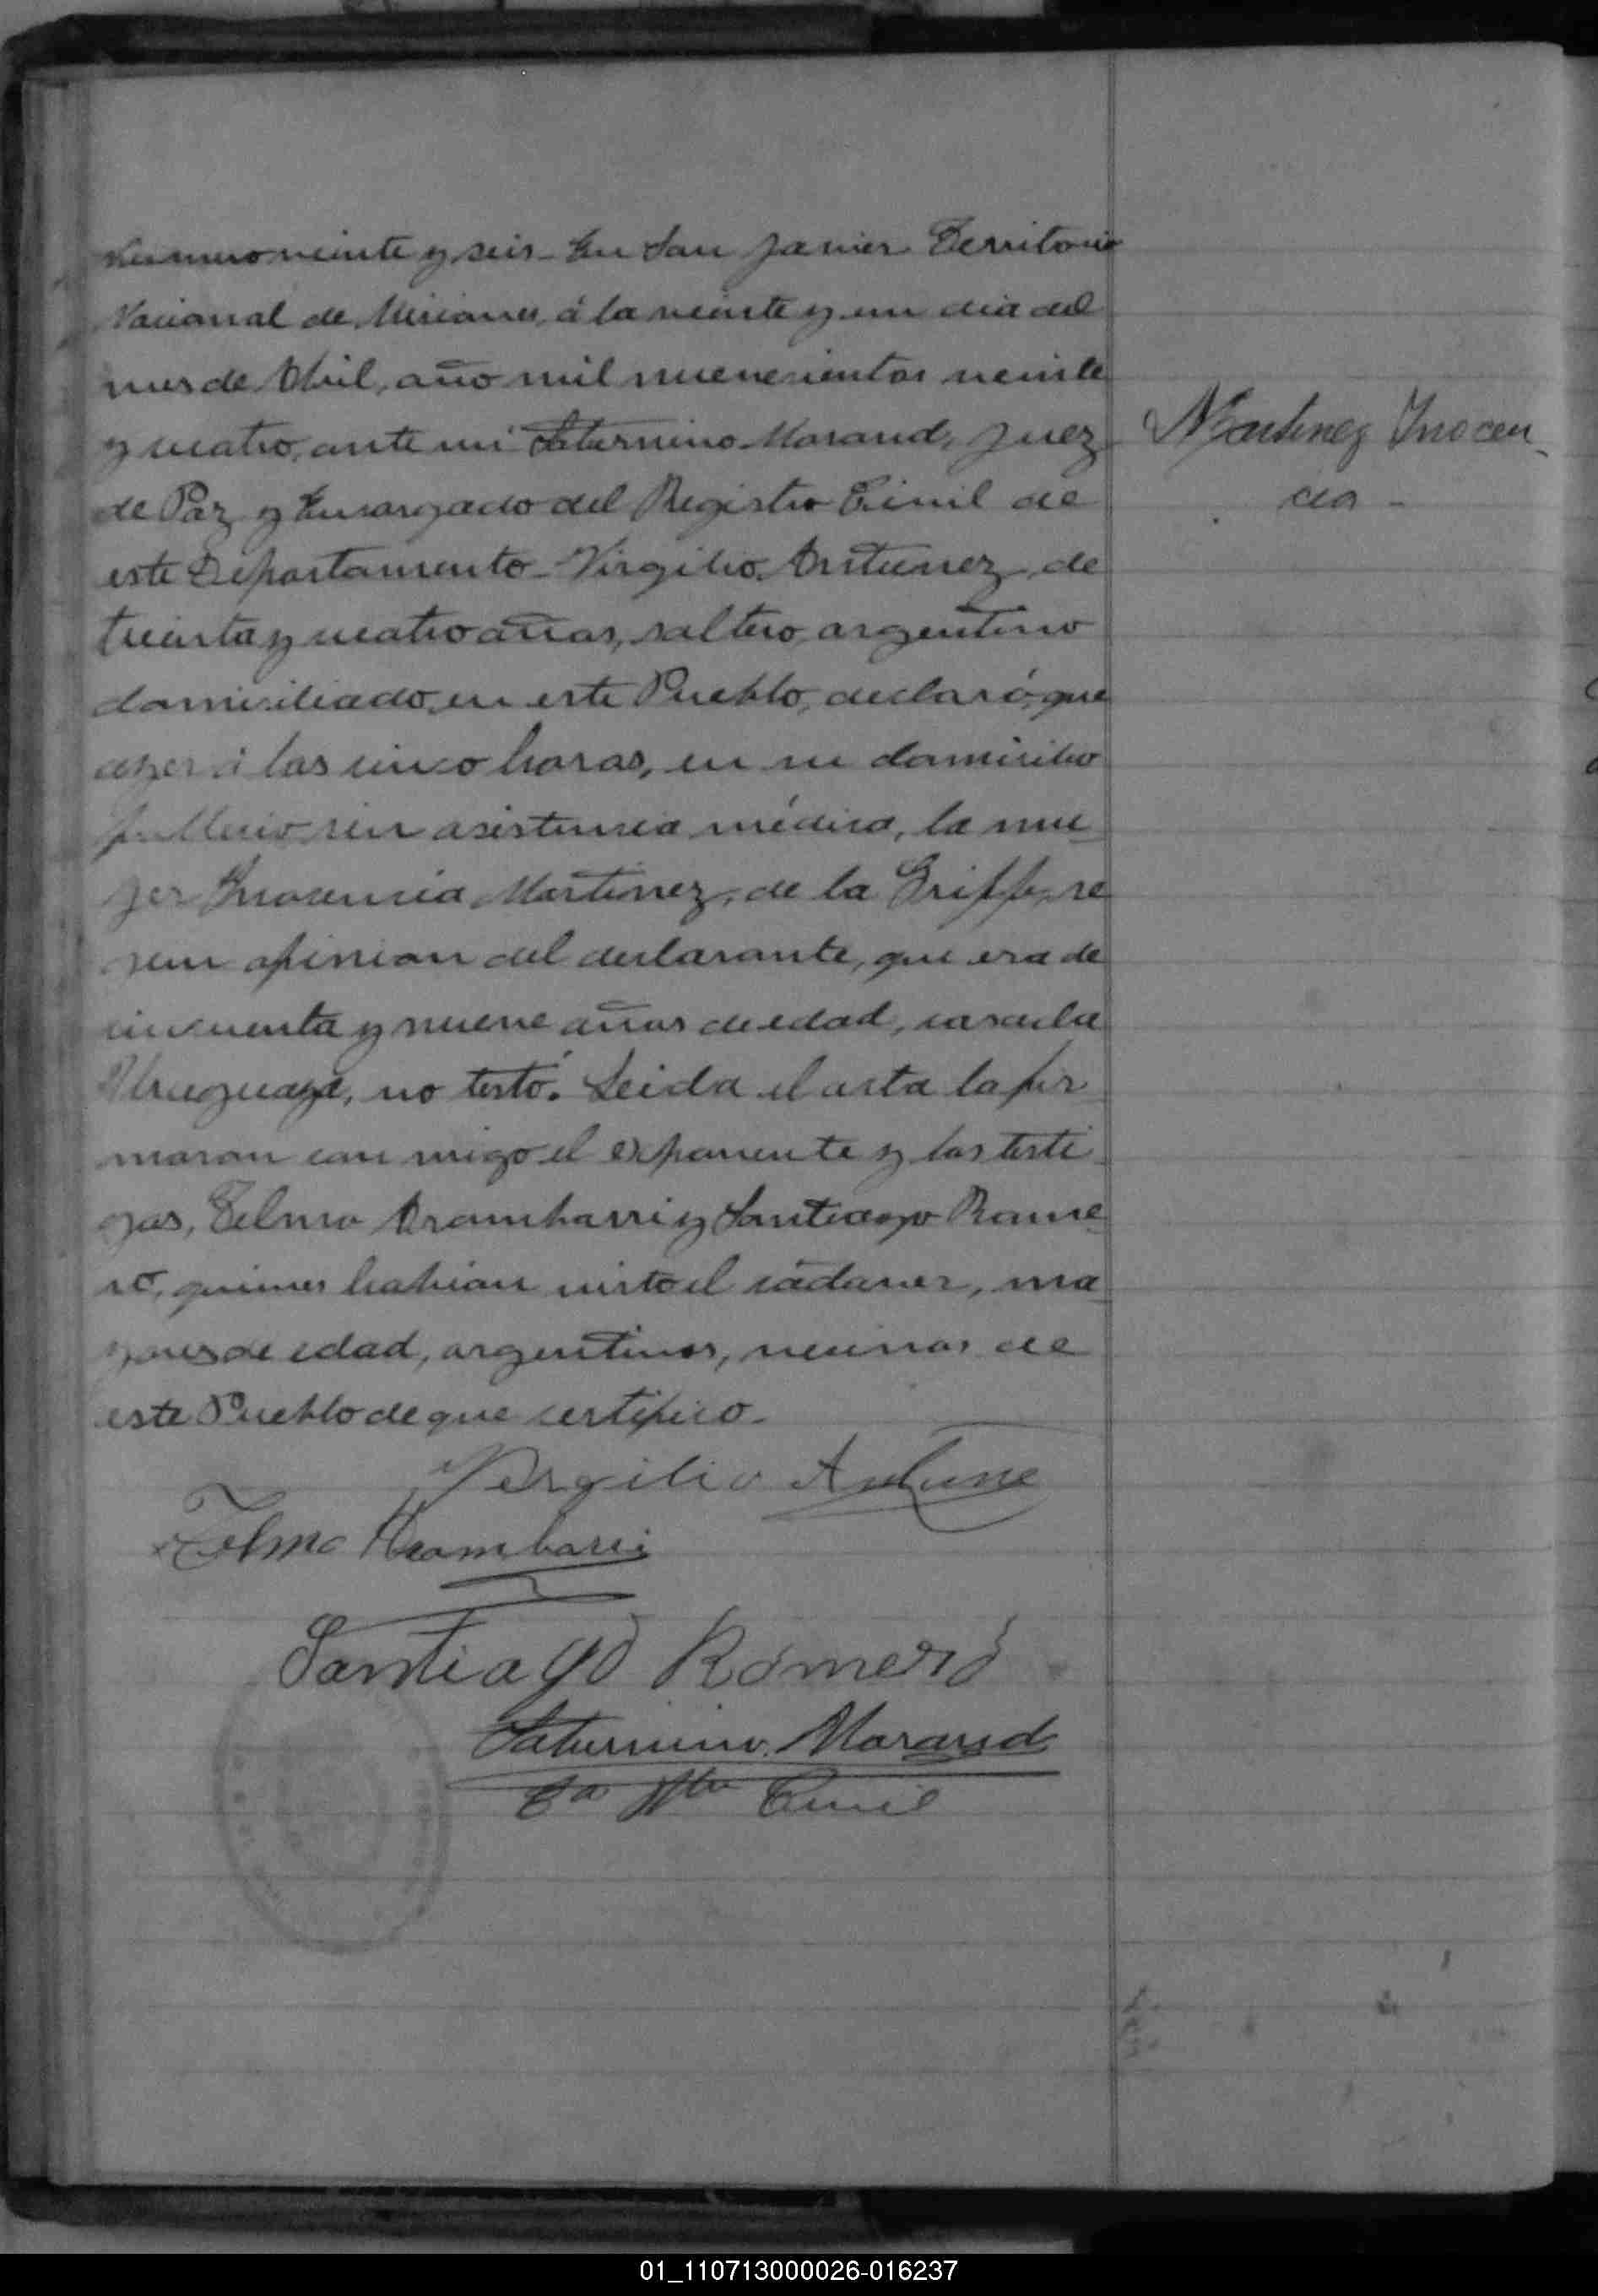 Numero veinte y seis - En San Javier Territorio
Nacional de Misiones, á la veinte y un dia del
mes de Abril, año mil novecientos veinte
y cuatro, ante mi Saturnino Morand, Juez
Martinez Inocen
de Paz y Encargado del Registro Civil de
cia -
este Departamento - Virgilio Antunez, de
treinta y cuatro años, soltero, argentino
domiciliado, en este Pueblo, declaró, que
ayer á las cinco horas, en su domicilio
fallecio sin asistencia médica, la mu
jer Inocencia Martinez, de la Grippe, se
gun opinion del declarante, que era de
cincuenta y nueve años de edad, casada
Uruguaya, no testó. Leida el acta la fir
maron con migo el exponente y los testi
gos, Telmo Arambarri y Santiago Rome
ro, quienes habian visto el cádaver, ma
yores de edad, argentinos, vecinos de
este Pueblo de que certifico -
Vergilio Antune
Telmo Arambarri
Santiago Romero
Saturnino Morand
Civil
01_110713000026-016237